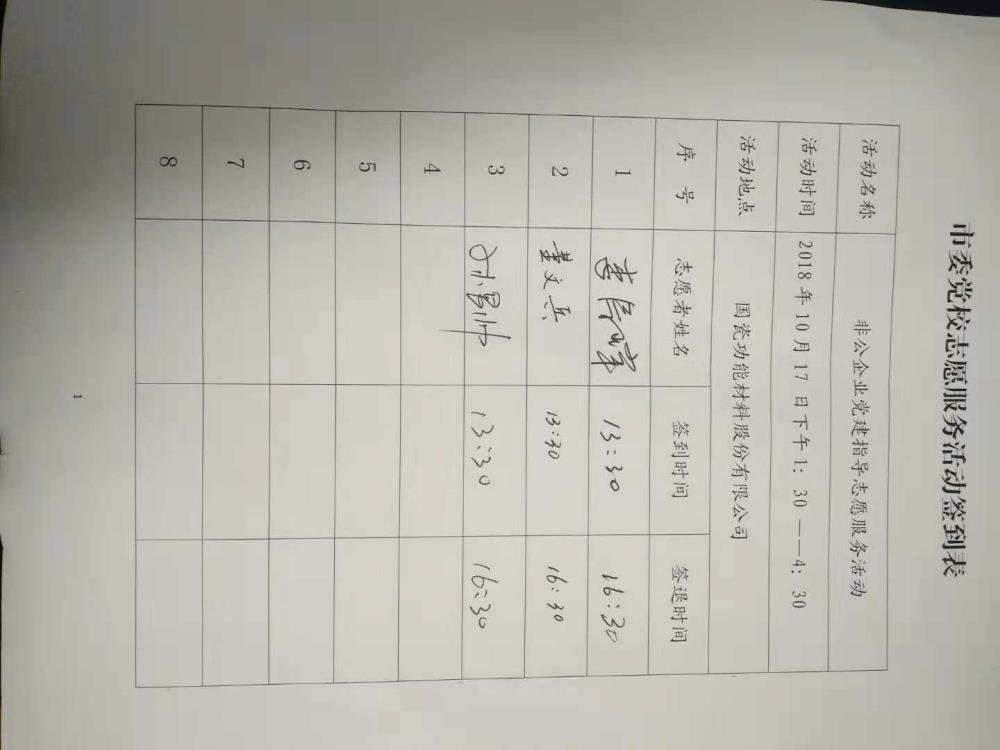 市委党校志愿服务活动签到表
活动名称 非公企业党建指导志愿服务活动
活动时间 2018年10月17日下午1：30——4：30
活动地点 国瓷功能材料股份有限公司
序 号 志愿者姓名 签到时间 签退时间
1 李 13:30 16:30
2 董文兵 13:30 16:30
3 刘 13:30 16:30
4
5
6
7
8
1